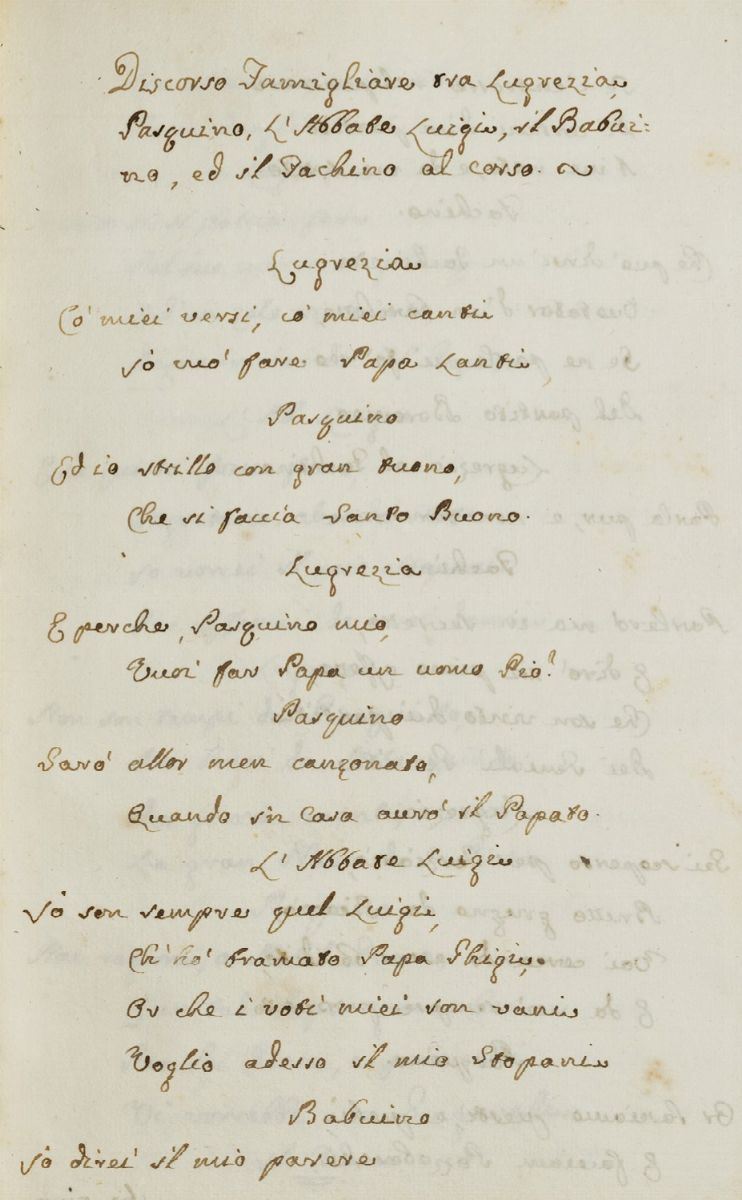 Discorso Famigliare tra Lugrezia,
Pasquino, L'Abbate Luigi, il Babui:
no, ed il Fachino al corso.
Lugrezia
Co' miei versi, co' miei canti
Io vuo' fare Papa Lanti
Pasquino
Ed io strillo con gran tuono,
Che si faccia Santo Buono.
Lugrezia
E perche, Pasquino mio,
Vuoi far Papa un uomo Pio?
Pasquino
Sarò allor men canzonato,
Quando in Casa aurò il Papato.
L'Abbate Luigi
Io son sempre quel Luigi,
Ch'hò bramato Papa Ghigi,
Or che i voti miei son vani
Voglio adesso il mio Stopani
Babuino
Io direi il mio parere